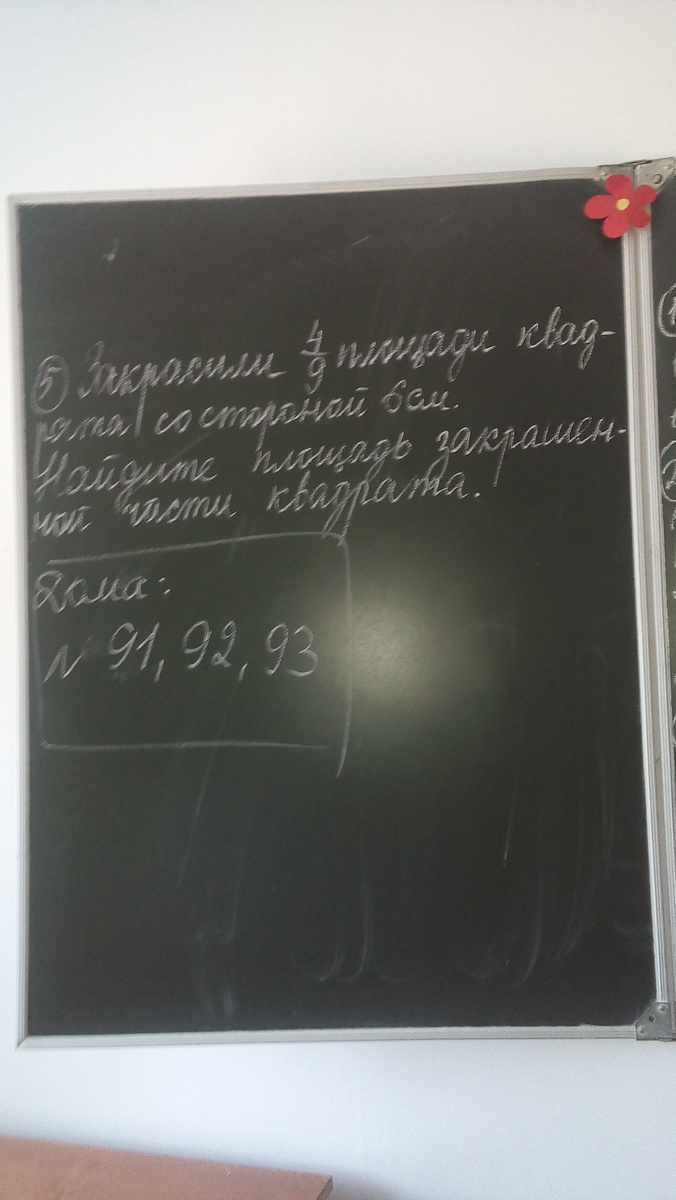 ⑤ Закрасили 4/9 площади квад-
рата со стороной 6см.
Найдите площадь закрашен-
ной части квадрата.
Дома:
№ 91, 92, 93